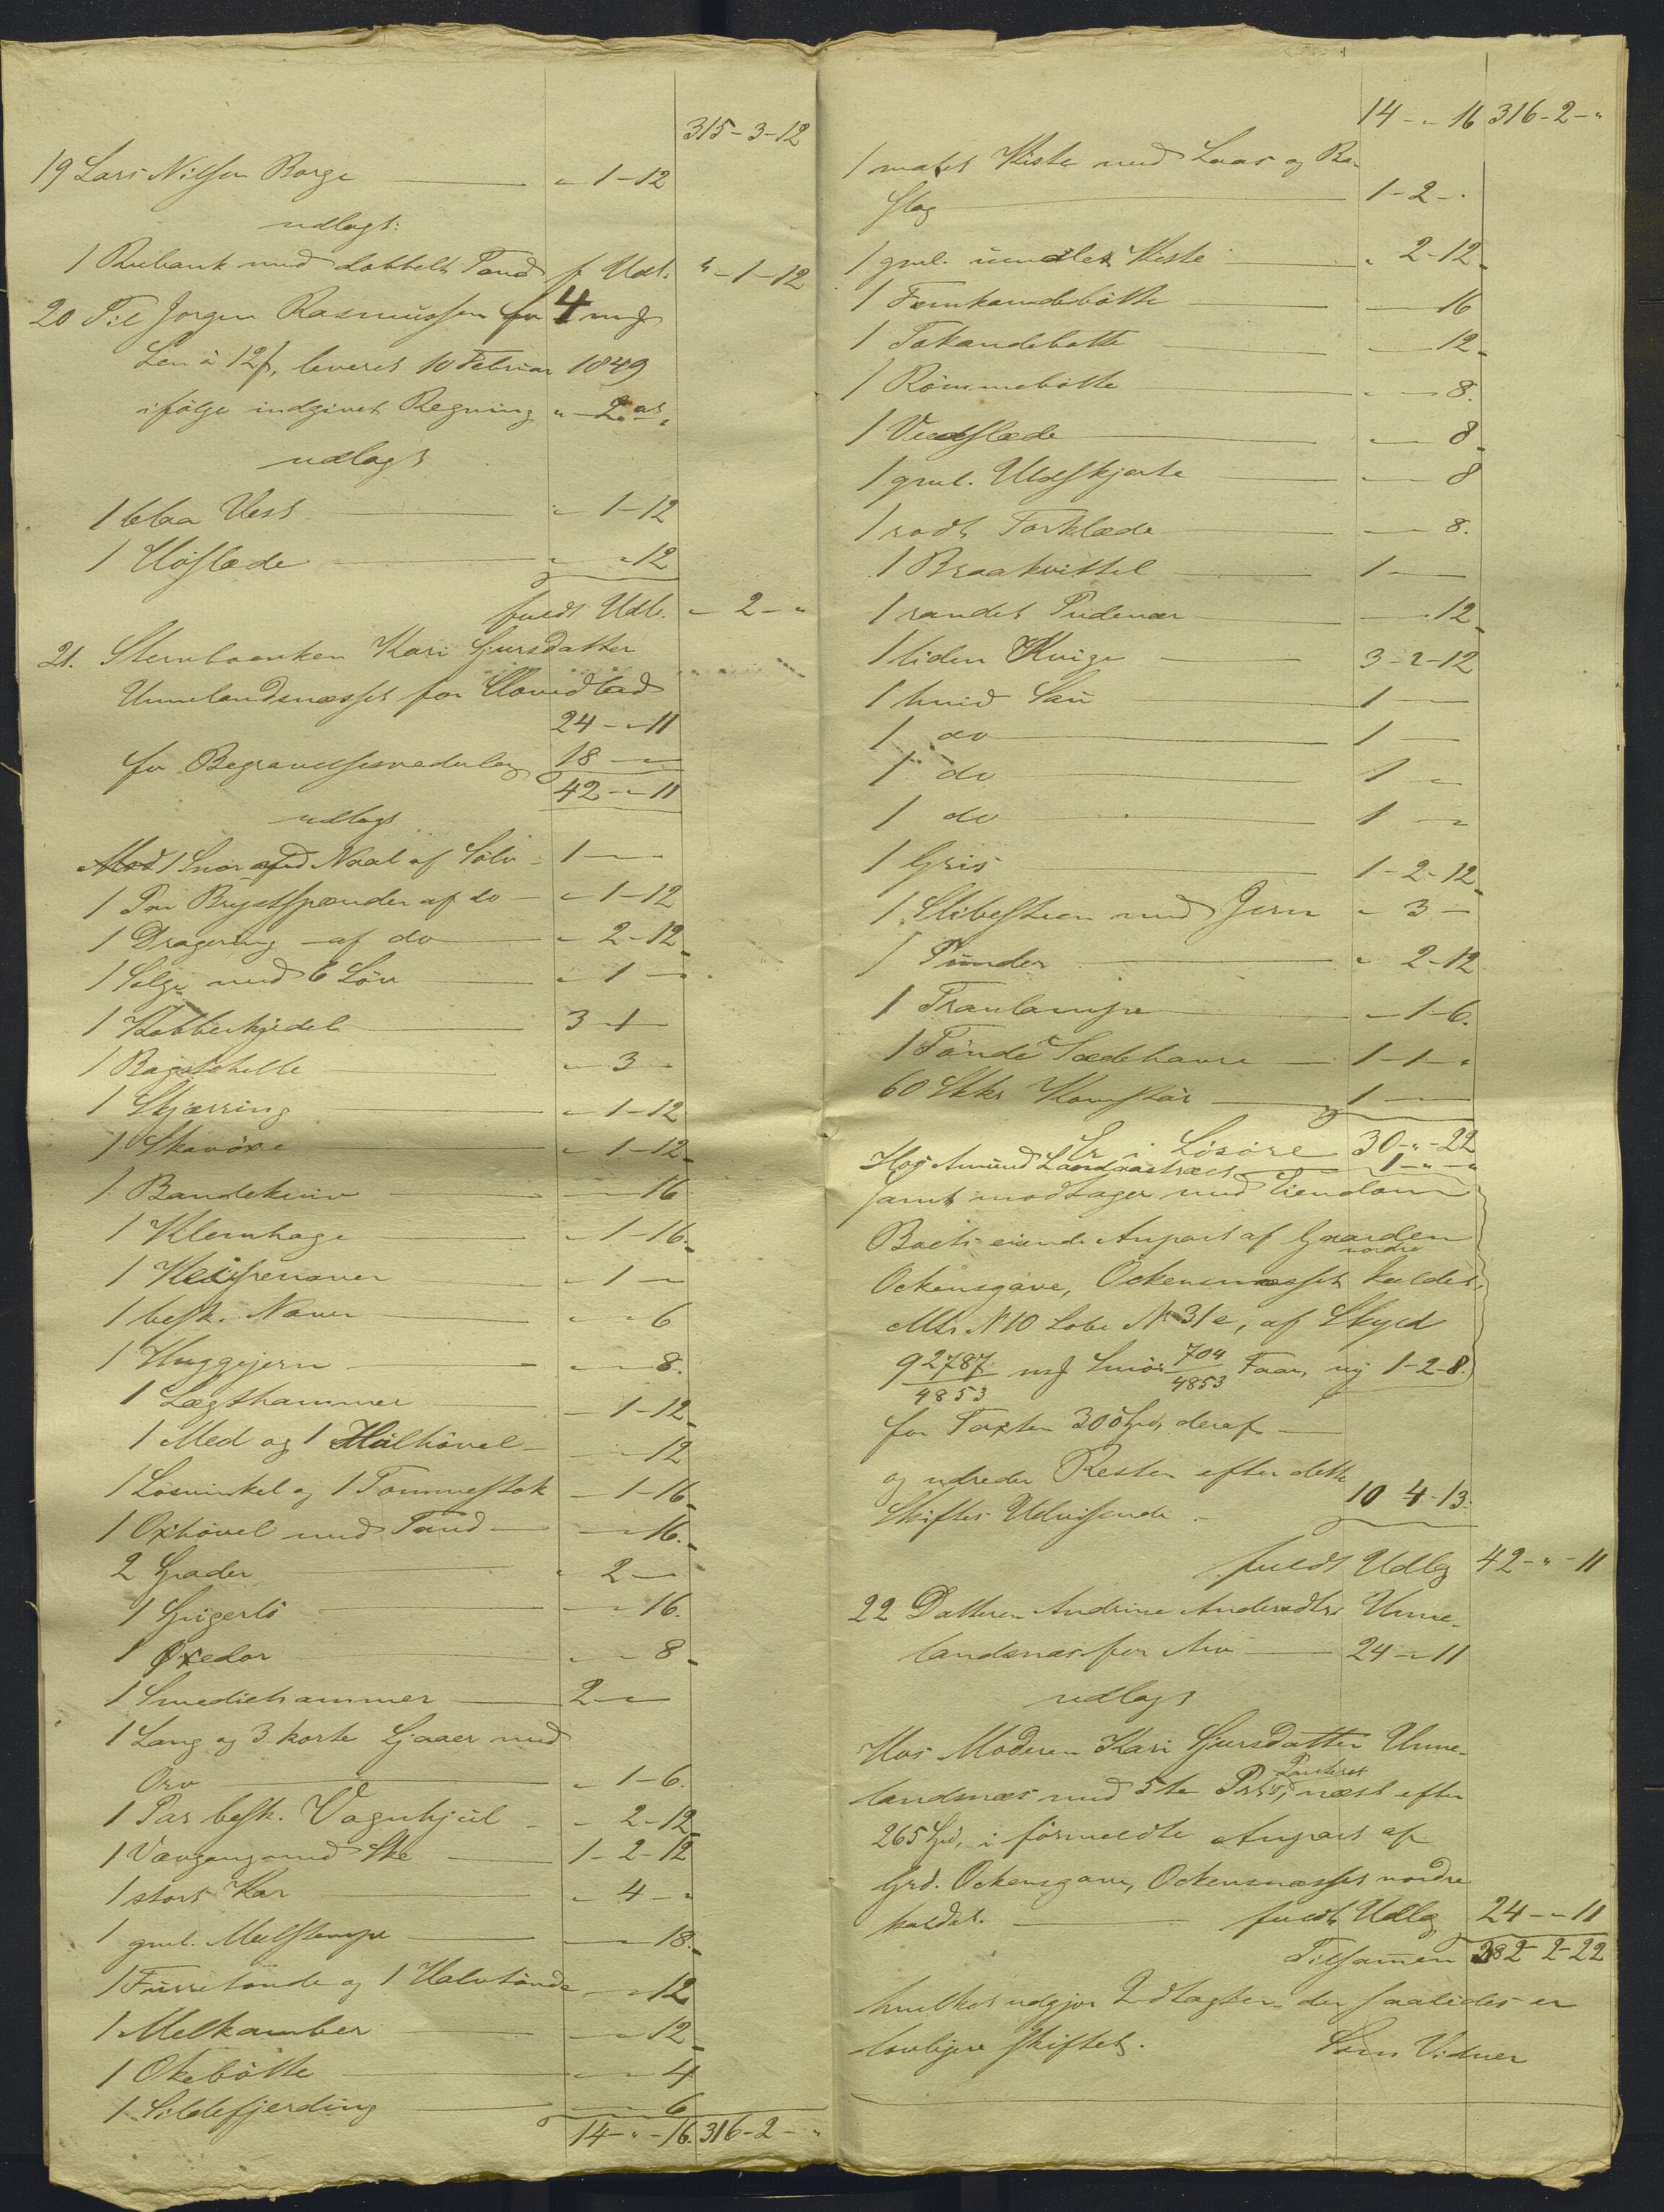 315-3-12
19 Lars Nilssen Borge - 1-12
udlagt:
1 Rubank med dobbelt Tand f Udl. " -1-12
20 Til Jørgen Rasmussen for 4 mk
Lin à 12 s, leveret 10 Februar 1849
ifølge indgivet Regning " - 2
udlagt
1 blaa Vest " 1-12
1 Høslæde " " 12
fuldt Udl. - 2 - "
21. Stervboenken Kari Gjursdatter
Unnelandsnæsset for Hovedlod
24 - " 11
for Begravelsesvederlag 18 - "
42 - " 11
udlagt
1 Snor med Naal af Sølv 1 - "
1 Par Brystspænder af do " 1-12
1 Dragering af do " 2-12
1 Sølge med 6 Løv " 1 - "
1 Kobberkjedel 3-1-
1 Bagstehelle " 3 -
1 Skjærring " 1-12
1 Skavøxe " 1-12
1 Bandekniv " " 16
1 Klemhage " 1-16
1 " 1 -
1 besk. Naver " " 6
1 Huggejern " " 8.
1 Lægthammer " 1-12
1 Med og 1 Hulhøvel " " 12
1 Løsvinkel og 1 Tommestok " 1-16
1 Oxhøvel med Tand " " 16.
2 Grader " 2 -
1 " " 16.
1 Øxedor " " 8
1 Smediehammer 2 - "
1 Lang og 3 korte Ljaaer med
Orv " 1-6
1 Par besk. Vognhjul " 2-12
1 Vævgang med Ske 1-2-12
1 stort Kar " 4 - "
1 gml. Meelstampe " " 18.
1 Furretønde og 1 Halvtønde " " 12
1 Melkamber " " 12
1 Økebøtte " " 4
1 Sildefjerding " " 6
14 - " -16. 316-2 - "
14 - " 16 316-2 - "
1 malet Kiste med Laas og Be-
slag 1-2 -
1 gml. umalet Kiste " 2-12
1 Femkandebøtte " 16
1 Tokandebøtte " 12
1 Rømmebøtte " 8.
1 Vedslæde " 8
1 gml. Uldskjorte " 8
1 rødt Forklæde " 8.
1 Braakvittel 1 -
1 randet Pudevar " 12
1 liden Kvige 3-2-12
1 hvid Sau 1 -
1 do 1 -
1 do 1 -
1 do 1 -
1 Gris 1-2-12
1 Slibesteen med Jern " 3 -
1 Punder " 2-12
1 Tranlampe " 1-6.
1 Tønde Sædehavre 1-1- "
60 Stkr 1 -
Er i Løsøre 30 - " -22
Hos Amund 1 - " - "
samt modtager med Eiendom
Boets eiende Anpart af Gaarden
nordre
Ockensgave, Ockensnæsset kaldet,
Mtr N 10 Løbe N 31e, af Skyld
9 2787/4853 mk Smør 704/4853 Faar, ny 1-2-8.
for Taxten 300 Spd, deraf
og udreder Resten efter dette
Skiftes Udvisende. 10 4-13.
fuldt Udlæg 42 - " - 11
22 Datteren Andrine Andersdtr Unne-
landsnæs for Arv 24 - " 11
udlagt
Hos Moderen Kari Gjursdatter Unne-
landsnæs med 5te Pris, næst efter
Panteret
265 Spd, i førmeldte Anpart af
Grd. Ockensgave, Ockensnæsset nordre
kaldet. fuldt Udlæg 24 - " 11
Tilsamen 382-2-22
hvilket udgjør Indtægten der saaledes er
lovligen skiftet. Som Vidner